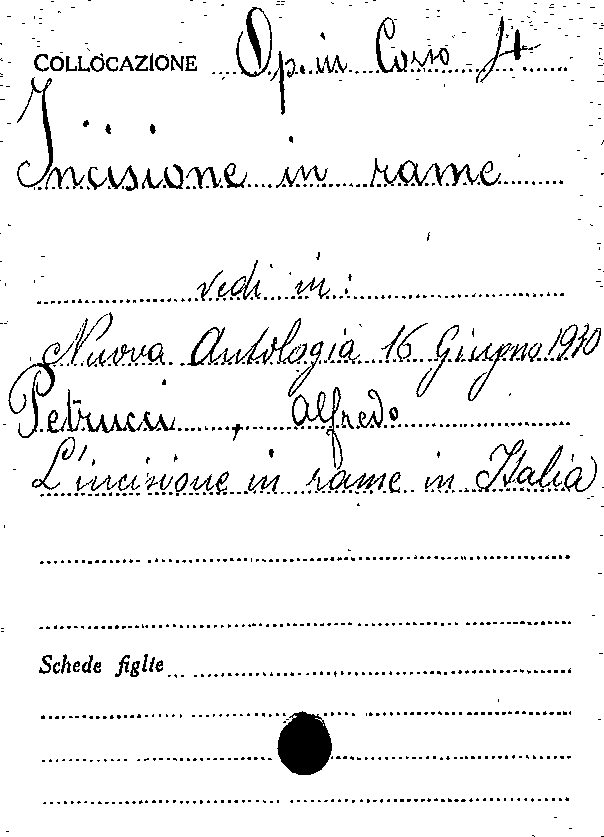 COLLOCAZIONE Op. in Corso 4
Incisione in rame
vedi in:
Nuova Antologia 16 Giugno 1930
Petrucci, Alfredo
L'incisione in rame in Italia
Schede figlie